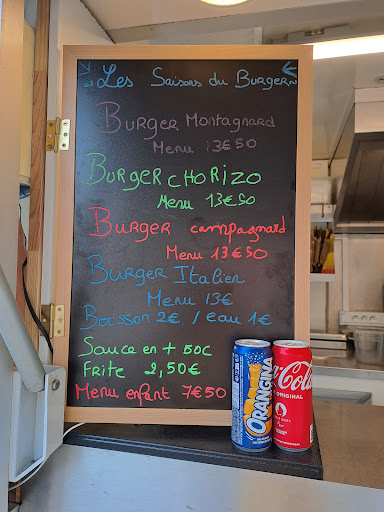 Les Saisons du Burger
Burger Montagnard
Menu 13€50
Burger CHORIZO
Menu 13€50
Burger campagnard
Menu 13€50
Burger Italien
Menu 13€
Boisson 2€ / eau 1€
Sauce en + 50C
Frite 2,50€
Menu enfant 7€50
ORANGINA
Coca-Cola
ORIGINAL